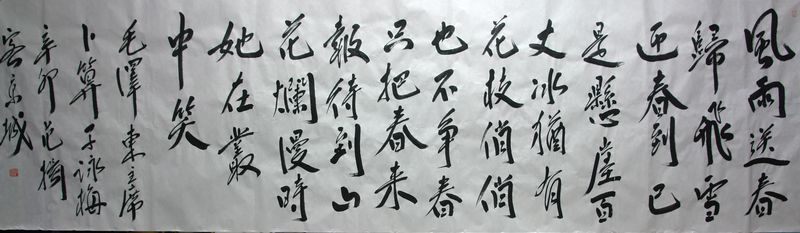 風雨送春
歸飛雪
迎春到已
是懸崖百
丈冰猶有
花枝俏俏
也不爭春
只把春來
報待到山
花爛漫時
她在叢
中笑
毛澤東主席
卜算子詠梅
辛卯范
客京城